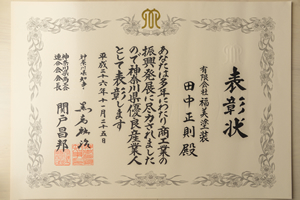 表彰状
有限会社福美塗装
田中正則殿
あなたは多年にわたり商工業の
振興発展に尽力されました
ので神奈川県優良産業人
として表彰します
平成二十六年十一月二十五日
神奈川県知事 黒岩祐治
神奈川県商工会
連合会会長 関戸昌邦